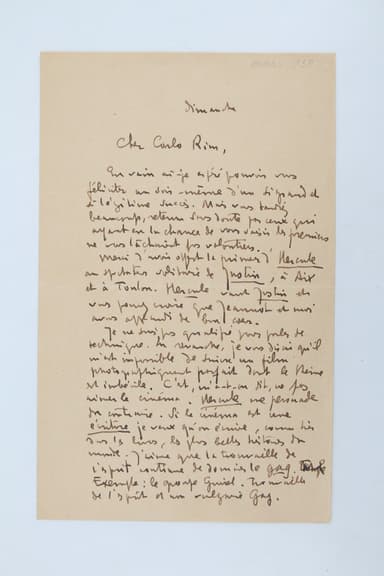 Dimanche
Cher Carlo Rim,
En vain ai-je espéré pouvoir vous
féliciter au soir même d'un si grand et
si légitime succès. Mais vous tardiez
beaucoup, retenu sans doute par ceux qui
ayant eu la chance de vous saisir les premiers
ne vous lâchaient pas volontiers.
merci d'avoir offert la primeur d'Hercule
au spectateur solitaire de Justin, à Aix
et à Toulon. Hercule vaut Justin et
vous pouvez croire que Jeannot et moi
avons applaudi de bon cœur.
Je ne suis pas qualifié pour parler de
technique. En revanche, je vous dirai qu'il
m'est impossible de suivre un film
photographiquement parfait dont le thème
est imbécile. C'est, m'a-t-on dit, ne pas
aimer le cinéma. Hercule me persuade
du contraire. Si le cinéma est une
écriture je veux qu'on écrive, comme
dans les livres, les plus belles histoires du
monde. J'aime que la trouvaille de
l'esprit continue de dominer le gag.
Exemple : le groupe Guidel. Trouvaille
de l'esprit et non vulgaire Gag.